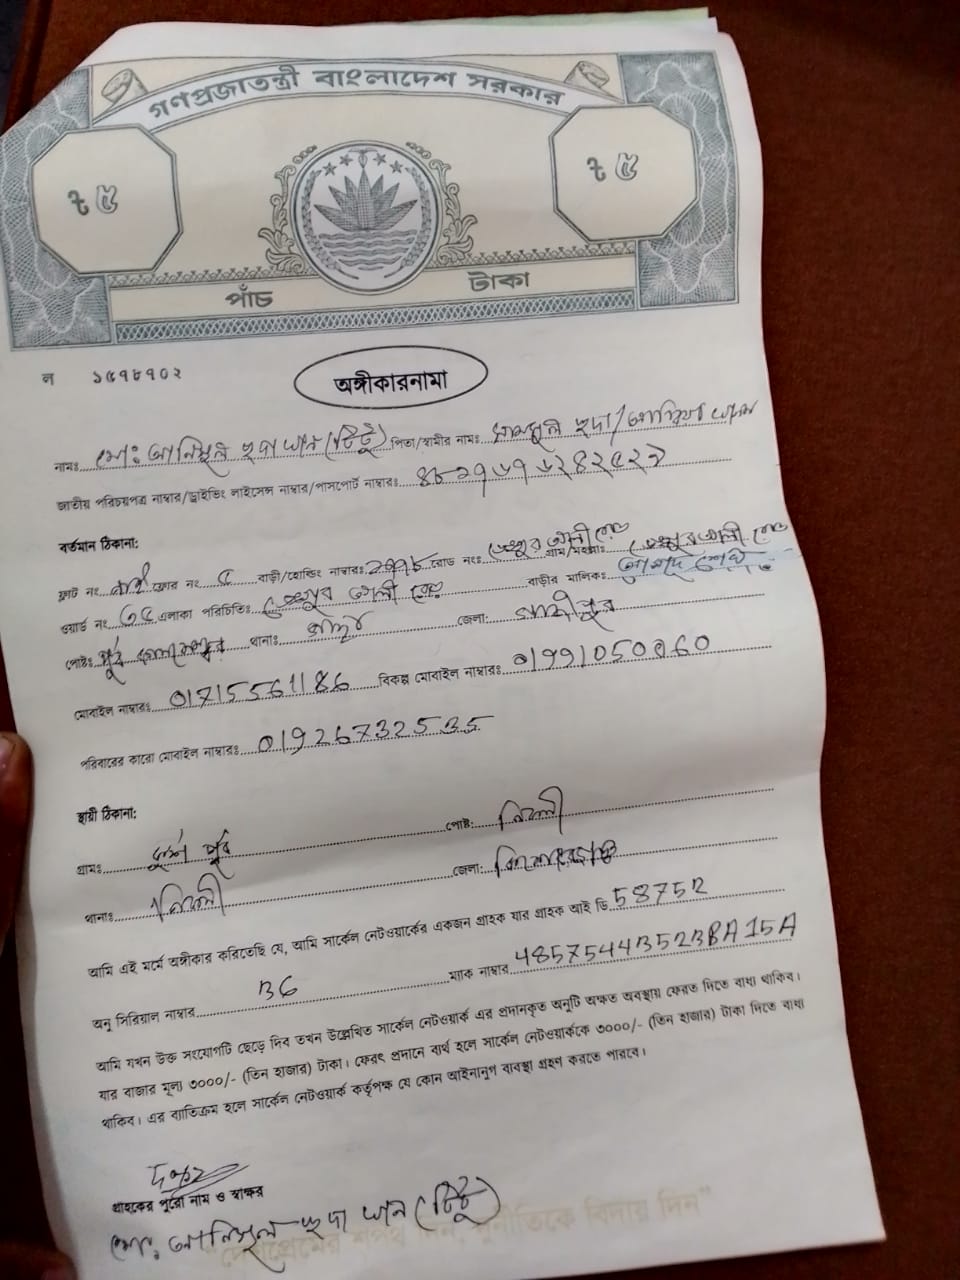 গণপ্রজাতন্ত্রী বাংলাদেশ সরকার
ট ৫ ট ৫
পাঁচ টাকা
ন ১৫৭৮৭০২
অঙ্গীকারনামা
নামঃ মোঃ হুদা খান (টিটু) পিতা/স্বামীর নামঃ হুদা/
জাতীয় পরিচয়পত্র নাম্বার/ড্রাইভিং লাইসেন্স নাম্বার/পাসপোর্ট নাম্বারঃ
বর্তমান ঠিকানা:
ফ্লাট নং ফ্লোর নং ৫ বাড়ী/হোল্ডিং নাম্বারঃ রোড নং গ্রাম/মহল্লাঃ
ওয়ার্ড নং ৩৫ এলাকা পরিচিতিঃ বাড়ীর মালিকঃ
পোষ্টঃ পূর্ব থানাঃ জেলা: গাজীপুর
মোবাইল নাম্বারঃ 01715561186 বিকল্প মোবাইল নাম্বারঃ 01991050060
পরিবারের কারো মোবাইল নাম্বারঃ 01926732535
স্থায়ী ঠিকানা:
গ্রামঃ পোষ্ট: নিকলী
থানাঃ নিকলী জেলা: কিশোরগঞ্জ
আমি এই মর্মে অঙ্গীকার করিতেছি যে, আমি সার্কেল নেটওয়ার্কের একজন গ্রাহক যার গ্রাহক আই ডি 58752
অনু সিরিয়াল নাম্বার ম্যাক নাম্বার
আমি যখন উক্ত সংযোগটি ছেড়ে দিব তখন উল্লেখিত সার্কেল নেটওয়ার্ক এর প্রদানকৃত অনুটি অক্ষত অবস্থায় ফেরত দিতে বাধ্য থাকিব।
যার বাজার মূল্য ৩০০০/- (তিন হাজার) টাকা। ফেরৎ প্রদানে ব্যর্থ হলে সার্কেল নেটওয়ার্ককে ৩০০০/- (তিন হাজার) টাকা দিতে বাধ্য
থাকিব। এর ব্যাতিক্রম হলে সার্কেল নেটওয়ার্ক কর্তৃপক্ষ যে কোন আইনানুগ ব্যবস্থা গ্রহণ করতে পারবে।
গ্রাহকের পুরো নাম ও স্বাক্ষর
মোঃ হুদা খান (টিটু)
"দেশপ্রেমের শপথ নিন, দুর্নীতিকে বিদায় দিন"